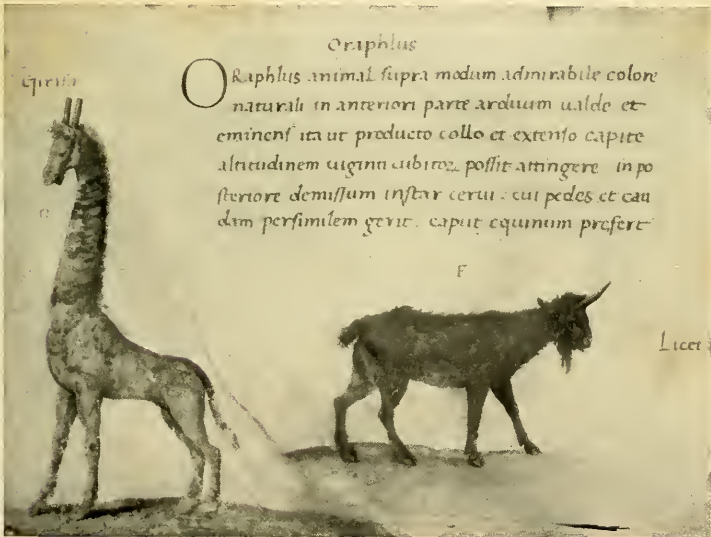 Oraphlus
ORaphlus animal supra modum admirabile colore
naturali in anteriori parte arduum ualde et
eminens ita ut producto collo et extenso capite
altitudinem uiginti cubitoꝝ possit attingere in po
steriore demissum instar cerui . cui pedes et cau
dam persimilem gerit . caput equinum prefert
F
Licet